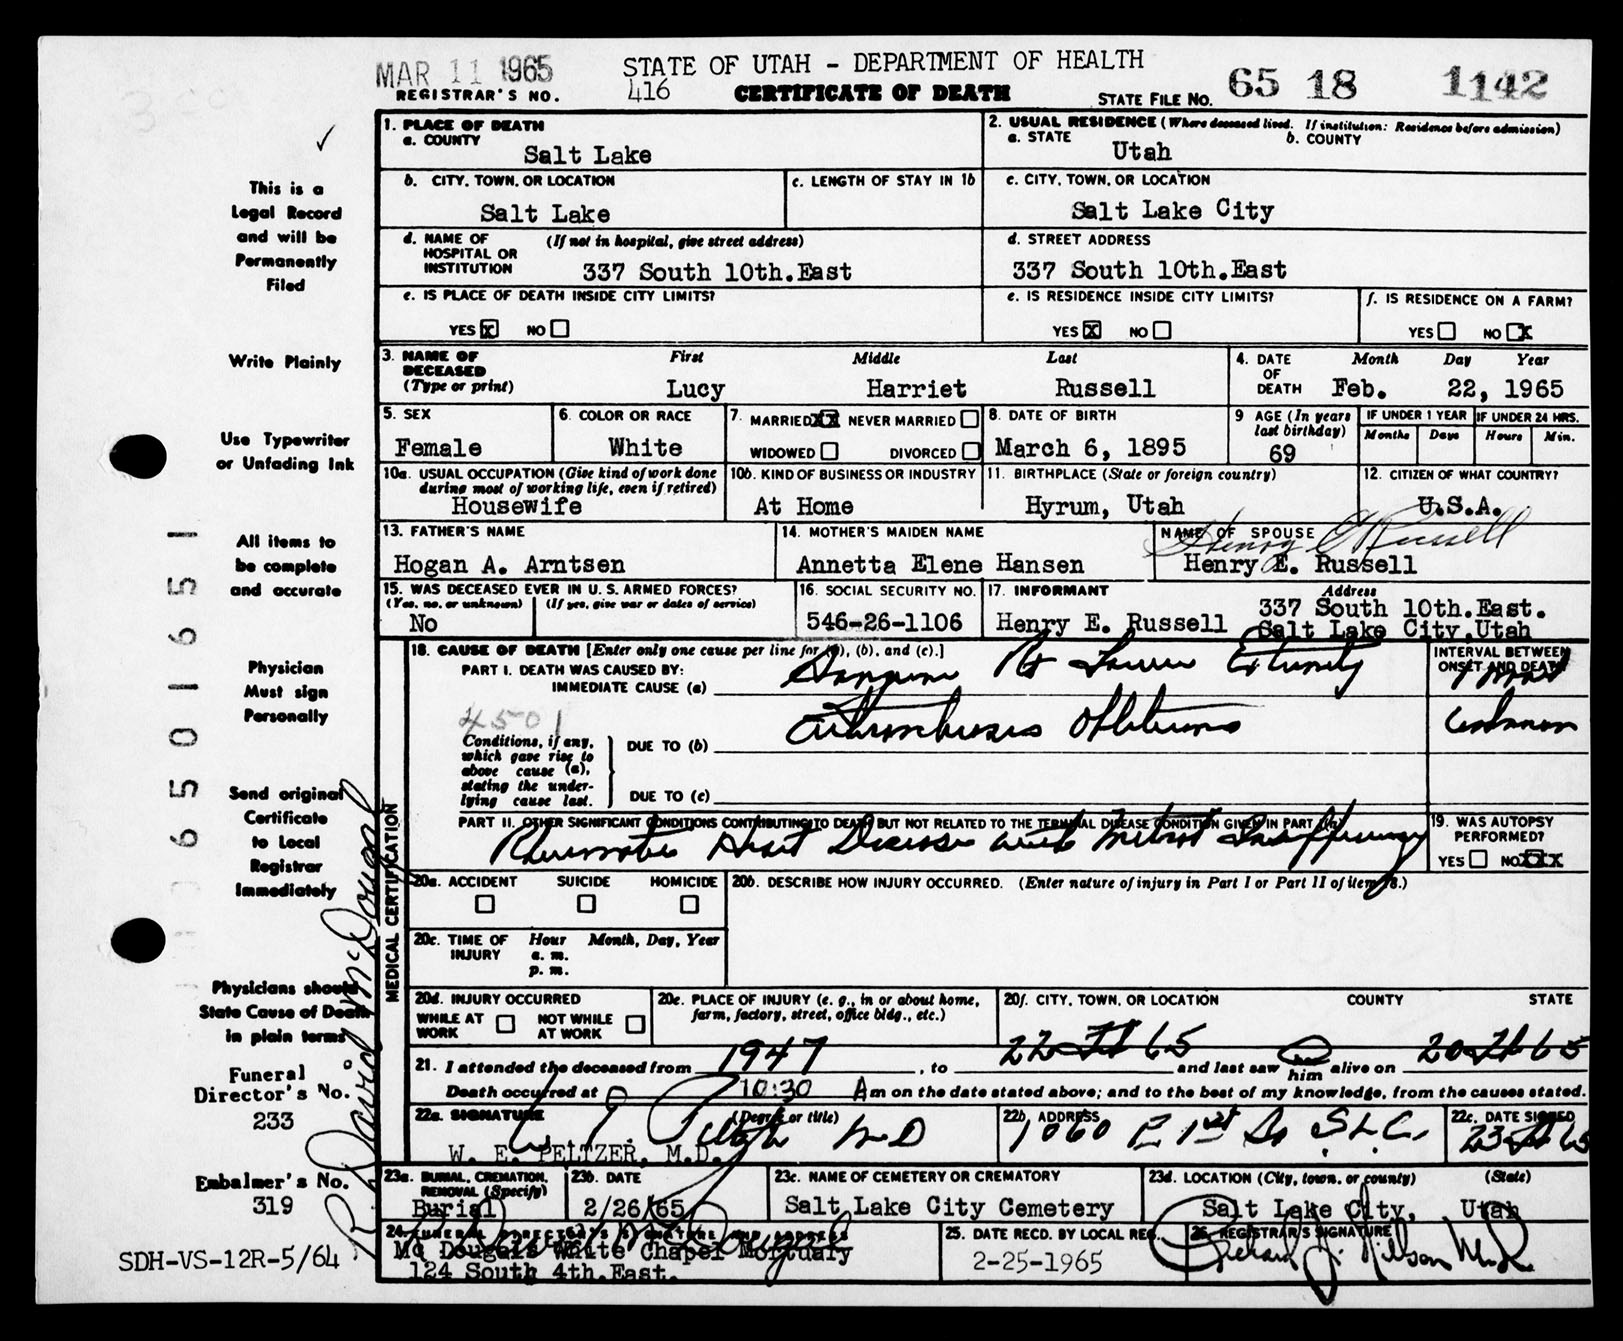 MAR 11 1965
STATE OF UTAH - DEPARTMENT OF HEALTH
REGISTRAR'S NO. 416
CERTIFICATE OF DEATH
STATE FILE NO. 65 18 1142
1. PLACE OF DEATH
a. COUNTY
Salt Lake
2. USUAL RESIDENCE (Where deceased lived. If institution: Residence before admission)
a. STATE b. COUNTY
Utah
b. CITY, TOWN, OR LOCATION
Salt Lake
c. LENGTH OF STAY IN 1b
c. CITY, TOWN, OR LOCATION
Salt Lake City
d. NAME OF HOSPITAL OR INSTITUTION (If not in hospital, give street address)
337 South 10th.East
d. STREET ADDRESS
337 South 10th.East
e. IS PLACE OF DEATH INSIDE CITY LIMITS?
YES X NO
e. IS RESIDENCE INSIDE CITY LIMITS?
YES X NO
f. IS RESIDENCE ON A FARM?
YES NO X
3. NAME OF DECEASED (Type or print)
First Middle Last
Lucy Harriet Russell
4. DATE OF DEATH Month Day Year
Feb. 22, 1965
5. SEX
Female
6. COLOR OR RACE
White
7. MARRIED XX NEVER MARRIED
WIDOWED DIVORCED
8. DATE OF BIRTH
March 6, 1895
9 AGE (In years last birthday)
69
IF UNDER 1 YEAR
Months Days
IF UNDER 24 HRS.
Hours Min.
10a. USUAL OCCUPATION (Give kind of work done during most of working life, even if retired)
Housewife
10b. KIND OF BUSINESS OR INDUSTRY
At Home
11. BIRTHPLACE (State or foreign country)
Hyrum, Utah
12. CITIZEN OF WHAT COUNTRY?
U.S.A.
13. FATHER'S NAME
Hogan A. Arntsen
14. MOTHER'S MAIDEN NAME
Annetta Elene Hansen
NAME OF SPOUSE
Henry E Russell
Henry E. Russell
15. WAS DECEASED EVER IN U.S. ARMED FORCES?
(Yes, no, or unknown) (If yes, give war or dates of service)
No
16. SOCIAL SECURITY NO.
546-26-1106
17. INFORMANT Address
Henry E. Russell
337 South 10th.East.
Salt Lake City,Utah
MEDICAL CERTIFICATION
18. CAUSE OF DEATH [Enter only one cause per line for (a), (b), and (c).]
PART I. DEATH WAS CAUSED BY:
IMMEDIATE CAUSE (a) Rt Lower Extremity
INTERVAL BETWEEN ONSET AND DEATH
4501
Conditions, if any, which gave rise to above cause (a), stating the underlying cause last.
DUE TO (b) Obliterans
Unknown
DUE TO (c)
PART II. OTHER SIGNIFICANT CONDITIONS CONTRIBUTING TO DEATH BUT NOT RELATED TO THE TERMINAL DISEASE CONDITION GIVEN IN PART I(a)
Rheumatic Heart Disease with Mitral Insufficiency
19. WAS AUTOPSY PERFORMED?
YES NO XXX
20a. ACCIDENT SUICIDE HOMICIDE
20b. DESCRIBE HOW INJURY OCCURRED. (Enter nature of injury in Part I or Part II of item 18.)
20c. TIME OF INJURY Hour Month, Day, Year
a. m.
p. m.
20d. INJURY OCCURRED
WHILE AT WORK NOT WHILE AT WORK
20e. PLACE OF INJURY (e. g., in or about home, farm, factory, street, office bldg., etc.)
20f. CITY, TOWN, OR LOCATION COUNTY STATE
21. I attended the deceased from 1947, to 22 Feb 65 and last saw her him alive on 20 Feb 65
Death occurred at 10:30 A m on the date stated above; and to the best of my knowledge, from the causes stated.
22a. SIGNATURE (Degree or title)
W E Peltzer MD
W. E. PELTZER, M.D.
22b. ADDRESS
1060 E 1st So S.L.C.
22c. DATE SIGNED
23 Feb 65
23a. BURIAL, CREMATION, REMOVAL (Specify)
Burial
23b. DATE
2/26/65
23c. NAME OF CEMETERY OR CREMATORY
Salt Lake City Cemetery
23d. LOCATION (City, town, or county) (State)
Salt Lake City, Utah
24. FUNERAL DIRECTOR'S SIGNATURE AND ADDRESS
R. David McDougal
Mc Dougals White Chapel Mortuary
124 South 4th.East.
25. DATE RECD. BY LOCAL REG.
2-25-1965
26. REGISTRAR'S SIGNATURE
This is a
Legal Record
and will be
Permanently
Filed
Write Plainly
Use Typewriter
or Unfading Ink
All items to
be complete
and accurate
Physician
Must sign
Personally
Send original
Certificate
to Local
Registrar
Immediately
Physicians should
State Cause of Death
in plain terms
Funeral
Director's No.
233
Embalmer's No.
319
R. David McDougal
SDH-VS-12R-5/64